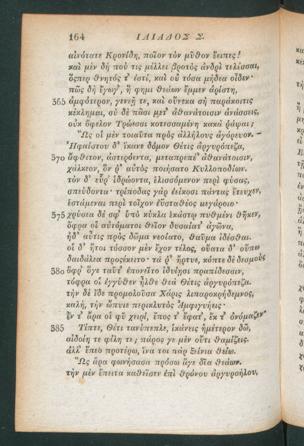 164 ΙΛΙΑΔΟΣ Σ.
αἰνότατε Κρονίδη, ποῖον τὸν μῦθον ἔειπες!
καὶ μὲν δή πού τις μέλλει βροτὸς ἀνδρὶ τελέσσαι,
ὅσπερ θνητός τ' ἐστί, καὶ οὐ τόσα μήδεα οἶδεν·
πῶς δὴ ἔγωγ', ἥ φημι θεάων ἔμμεν ἀρίστη,
365 ἀμφότερον, γενεῇ τε, καὶ οὕνεκα σὴ παράκοιτις
κέκλημαι, σὺ δὲ πᾶσι μετ' ἀθανάτοισιν ἀνάσσεις,
οὐκ ὄφελον Τρώεσσι κοτεσσαμένη κακὰ ῥάψαι;
Ὣς οἱ μὲν τοιαῦτα πρὸς ἀλλήλους ἀγόρευον. —
Ἡφαίστου δ' ἵκανε δόμον Θέτις ἀργυρόπεζα,
370 ἄφθιτον, ἀστερόεντα, μεταπρεπέ' ἀθανάτοισιν,
χάλκεον, ὅν ῥ' αὐτὸς ποιήσατο Κυλλοποδίων.
τὸν δ' εὗρ' ἱδρώοντα, ἑλισσόμενον περὶ φύσας,
σπεύδοντα· τρίποδας γὰρ ἐείκοσι πάντας ἔτευχεν,
ἑστάμεναι περὶ τοῖχον ἐϋσταθέος μεγάροιο·
375 χρύσεα δέ σφ' ὑπὸ κύκλα ἑκάστῳ πυθμένι θῆκεν,
ὄφρα οἱ αὐτόματοι θεῖον δυσαίατ' ἀγῶνα,
ἠδ' αὖτις πρὸς δῶμα νεοίατο, θαῦμα ἰδέσθαι.
οἱ δ' ἤτοι τόσσον μὲν ἔχον τέλος, οὔατα δ' οὔπω
δαιδάλεα προσέκειτο· τά ῥ' ἤρτυε, κόπτε δὲ δεσμούς
380 ὄφρ' ὅγε ταῦτ' ἐπονεῖτο ἰδυίῃσι πραπίδεσσιν,
τόφρα οἱ ἐγγύθεν ἦλθε θεὰ Θέτις ἀργυρόπεζα.
τὴν δὲ ἴδε προμολοῦσα Χάρις λιπαροκρήδεμνος,
καλή, τὴν ὤπυιε περικλυτὸς Ἀμφιγυήεις·
ἔν τ' ἄρα οἱ φῦ χειρί, ἔπος τ' ἔφατ', ἔκ τ' ὀνόμαζεν·
385 Τίπτε, Θέτι τανύπεπλε, ἱκάνεις ἡμέτερον δῶ,
αἰδοίη τε φίλη τε; πάρος γε μὲν οὔτι θαμίζεις.
ἀλλ' ἕπεο προτέρω, ἵνα τοι πὰρ ξείνια θείω.
Ὣς ἄρα φωνήσασα πρόσω ἄγε δῖα θεάων.
τὴν μὲν ἔπειτα καθεῖσεν ἐπὶ θρόνου ἀργυροήλου,